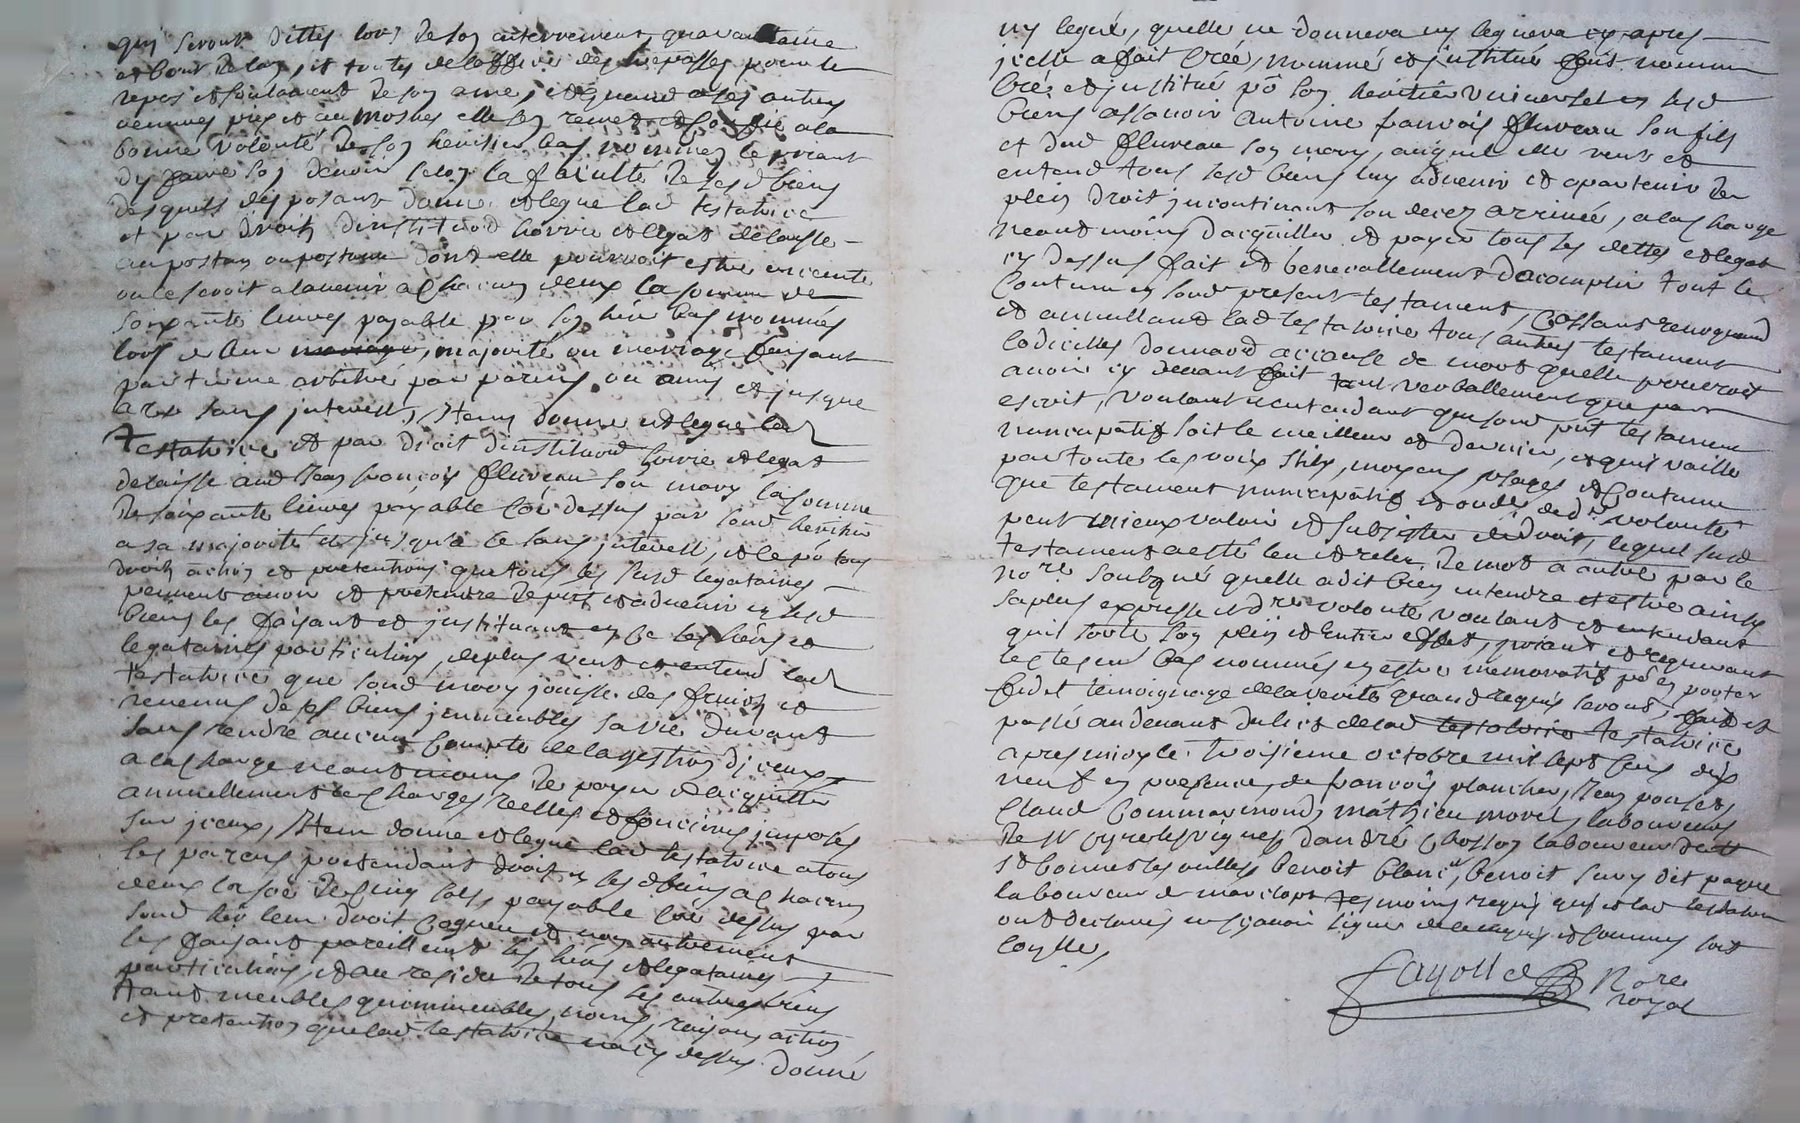 qui seront dittes lors de son enterrement, quarantaine
et bout de lan, et toutes de loffice des trepasses pour le
repos et soulagement de son ame, et quand a ses autres
œuvres pies et aumosnes elle sen remet et confie a la
bonne volonté de son heritier bas nommé le priant
dy faire son devoir selon la faculté de sesd biens
desquels disposant donne et legue lad testatrice
et par droit dinstitu͠on horrie et legat delaisse
au postum ou postume dont elle pourroit estre enceinte
ou le seroit a lavenir a chacun deux la somme de
soixante livres payable par son hér bas nommé
lors de leur majorité ou mariage faisant
par terme arbitré par parens ou amis et jusque
a ce sans interests, Item donne et legue lad
testatrice et par droit dinstitu͠on horrie et legat
delaisse aud Jean françois fluveau son mary la somme
de soixante livres payable co͠e dessus par sond heritier
a sa majorité et jusqu'a ce sans interest, et le po͠ tous
droits action et pretentions que tous les susd legataires
peuvent avoir et pretendre de put et advenir en sesd
biens les faisant et instituant en ce ses hérs et
legataires particuliers, de plus veut et entend lad
testatrice que sond mary jouisse des fruits et
revenus de ses biens immeubles sa vie durant
sans rendre aucun compte de la gestion diceux
a la charge neantmoins de payer et acquitter
annuellement les charges reelles et foncieres imposés
sur iceux, Item donne et legue lad testatrice a tous
les parens pretendant droit en sesd biens a chacun
deux la so͠e de cinq sols, payable co͠e dessus par
sond hér leur droit cogneu et non autrement
les faisant pareillement ses hérs et legataires
particuliers, et au residu de tous ses autres biens
tant meubles qu'immeubles, noms, raisons actions
et pretention que lad testatrice na cy dessus donné
ny legué, quelle ne donnera ny leguera cy apres
icelle a fait créé, nommé et institué fait nomme
cré et institue po͠ son heritier universel en sesd
biens assavoir Antoine françois fluveau son fils
et dud fluveau son mary, auquel elle veut et
entend tous sesd biens luy advenir et apartenir de
plein droit incontinant son decez arrivée, a la charge
neantmoins dacquitter et payer tous les dettes et legat
cy dessus fait et generallement dacomplir tout le
contenu en sond present testament, cassant revoquand
et annulland lad testatrice tous autres testament
codicilles donnaõn a cause de mort quelle pourroit
avoir cy devant fait tant verballement que par
escrit, voulant et entendant que sond put testament
nuncupatif soit le meilleur et dernier, et quil vaille
par toute les voix stile, moyens usages et coutume
que testament nuncupatif et ord͠re de dre volonté
peut mieux valoir et subsister de droit, lequel susd
testament a esté leu et releu de mot a autre par le
nore soubsigné quelle a dit bien entendre et estre ainsy
sa plus expresse et dre volonté voulant et entendant
quil sorte son plein et entier effet, priant et requerant
les tesm͠ bas nommés en estre memoratifs po͠ en porter
fid et témoignage de la verité quand requis seront, fait et
passé au devant du lict de lad testatrice
apres midy le troisieme octobre mil sept cens dix
neuf en presence de françois plancher, Jean ponset,
Claud Commarmond, mathieu morel, laboureurs
de St Cyr les vignes, dandré chosson laboureur de
St bonnet les oulles, benoit blanc, benoit savy dit pagne
laboureur de marclopt tesmoins requis qui et lad testatrice
ont declarés ne sçavoir signer de ce enquis et sommés soit
conllé,
Fayolle Nore
royal